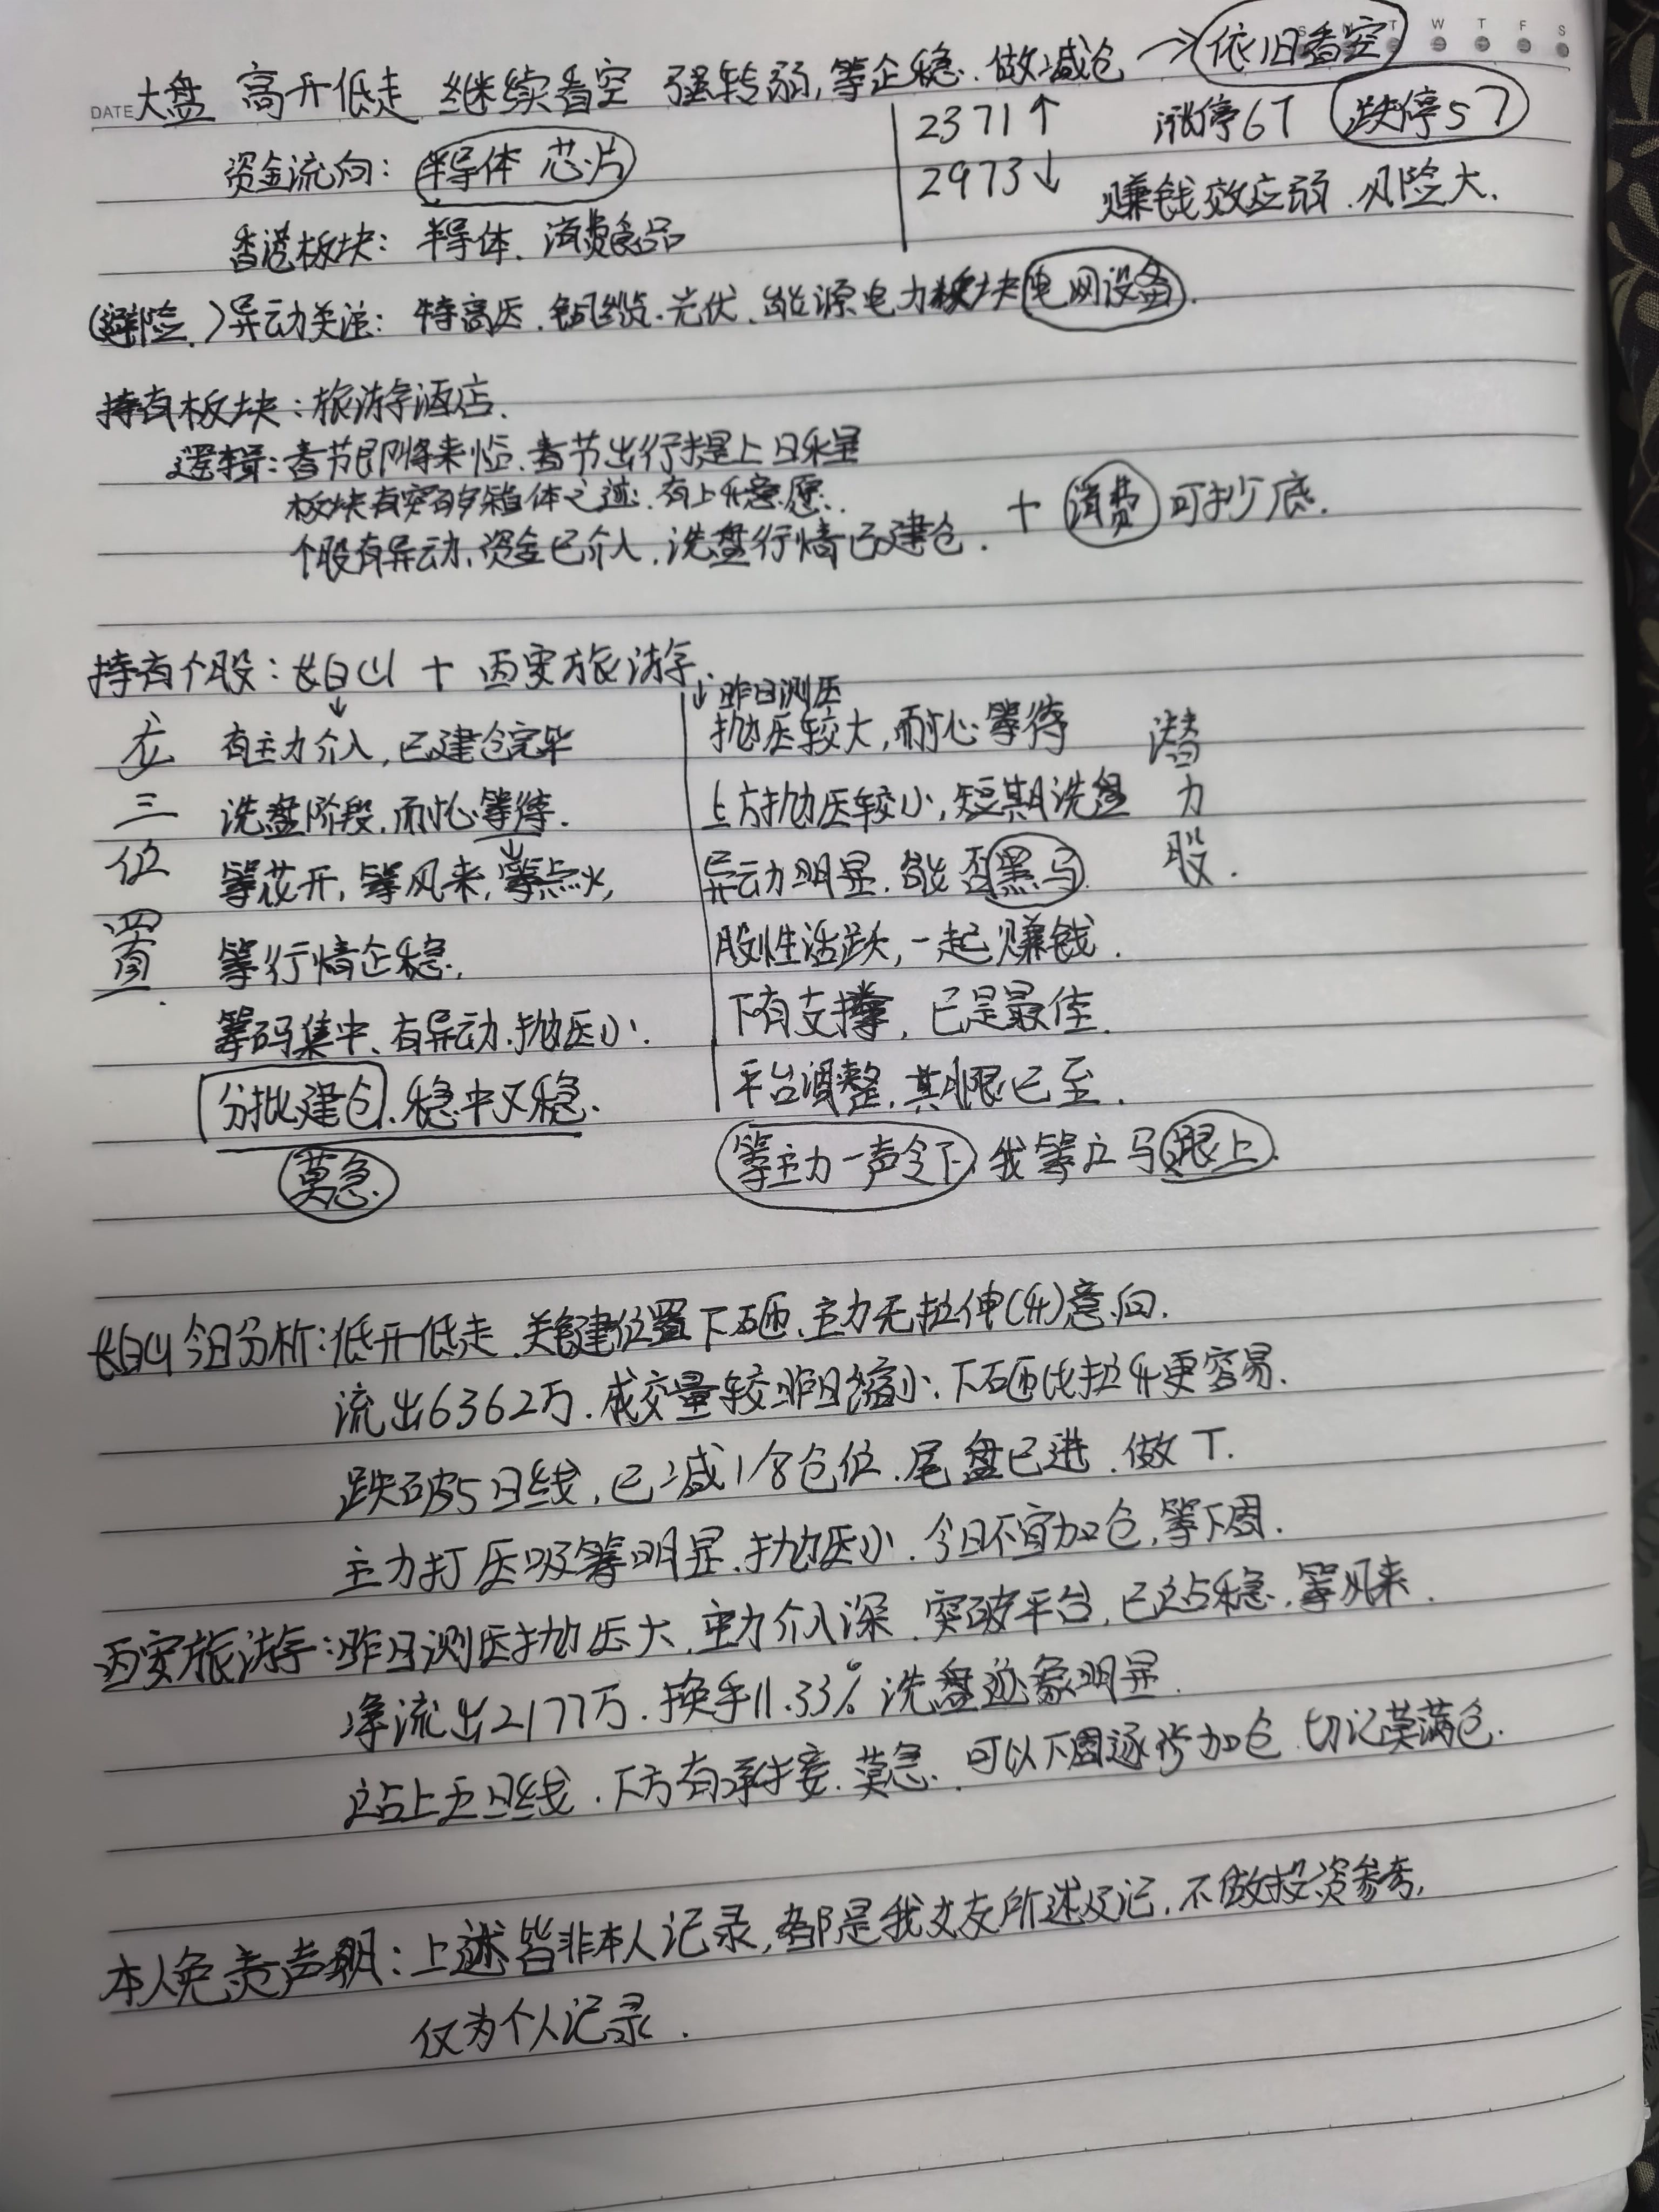 W T F S
DATE 大盘 高开低走 继续看空 强转弱,等企稳.做减仓 → 依旧看空
资金流向: 半导体 芯片
2371↑ 涨停67 跌停57
2973↓ 赚钱效应弱.风险大.
香港板块: 半导体. 消费食品
(避险.)异动关注: 特高压.铜缆.光伏.能源电力板块 电网设备.
持有板块:旅游酒店.
逻辑:春节即将来临.春节出行提上日程
板块有突破箱体之迹.有上升意愿.
个股有异动,资金已介入,洗盘行情已建仓. + 消费 可抄底.
持有个股:长白山 + 西安旅游.
↓ ↓昨日测压
三位置
有主力介入,已建仓完毕
洗盘阶段,耐心等待.
等花开,等风来,等点火,
等行情企稳,
筹码集中、有异动.抛压小.
分批建仓.稳中又稳.
莫急.
抛压较大,耐心等待
上方抛压较小,短期洗盘
异动明显.能否黑马.
股性活跃,一起赚钱.
下有支撑,已是最佳.
平台调整,其限已至.
等主力一声令下,我等立马跟上.
潜力股.
长白山今日分析:低开低走.关键位置下砸.主力无拉伸(升)意向.
流出6362万.成交量较昨日缩小.下砸比拉升更容易.
跌破5日线,已减1/8仓位.尾盘已进.做T.
主力打压吸筹明显.抛压小.今日不宜加仓,等下周.
西安旅游:昨日测压抛压大.主力介入深.突破平台,已站稳.等风来.
净流出2177万.换手11.33% 洗盘迹象明显.
站上五日线.下方有承接.莫急.可以下周逐步加仓.切记莫满仓.
本人免责声明:上述皆非本人记录,都是我文友所述及记.不做投资参考,
仅为个人记录.